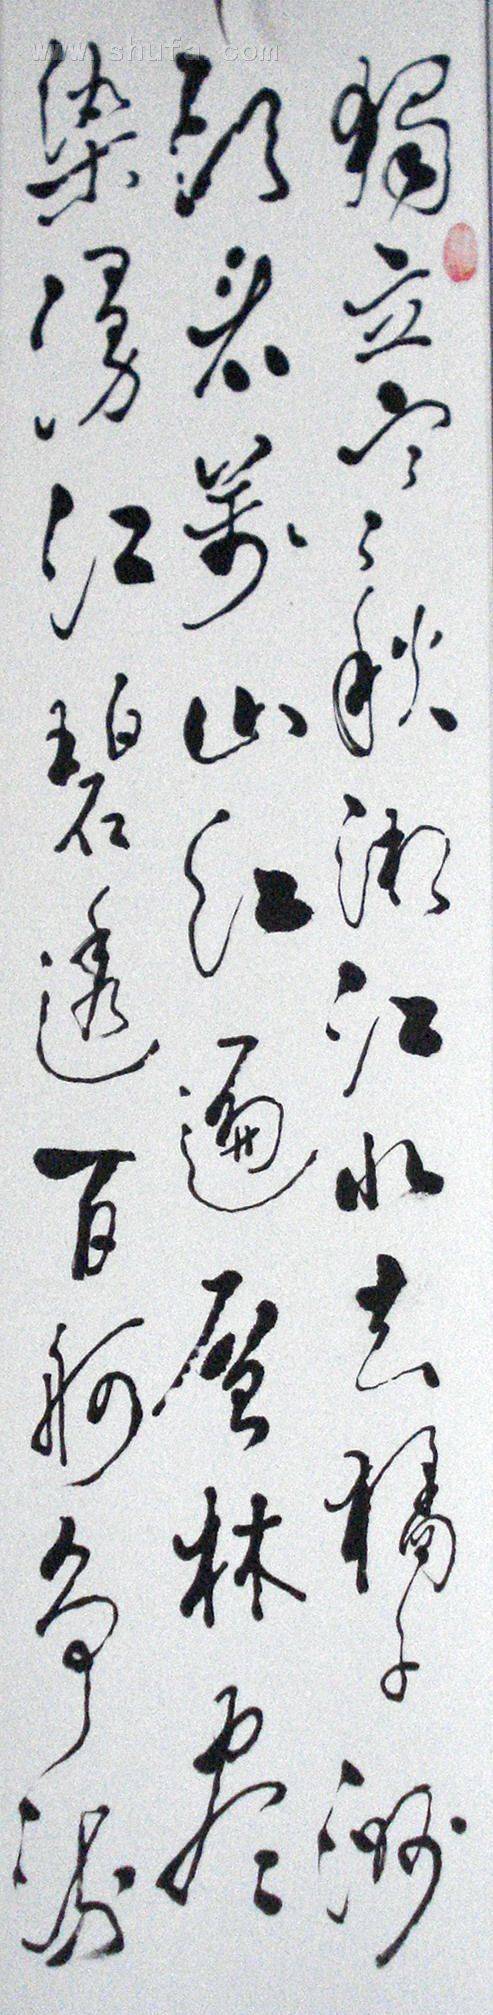 www.shufa.com
獨立寒秋湘江北去橘子洲
頭看萬山紅遍層林盡
染漫江碧透百舸争流